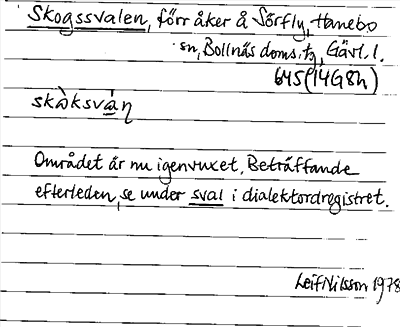 Skogssvalen, förr åker å Sörfly, Hanebo
sn, Bollnäs doms. tg, Gävl. l.
645 (14G8h)
skàksván
Området är nu igenvuxet. Beträffande
efterleden, se under sval i dialektordregistret.
Leif Nilsson 1978